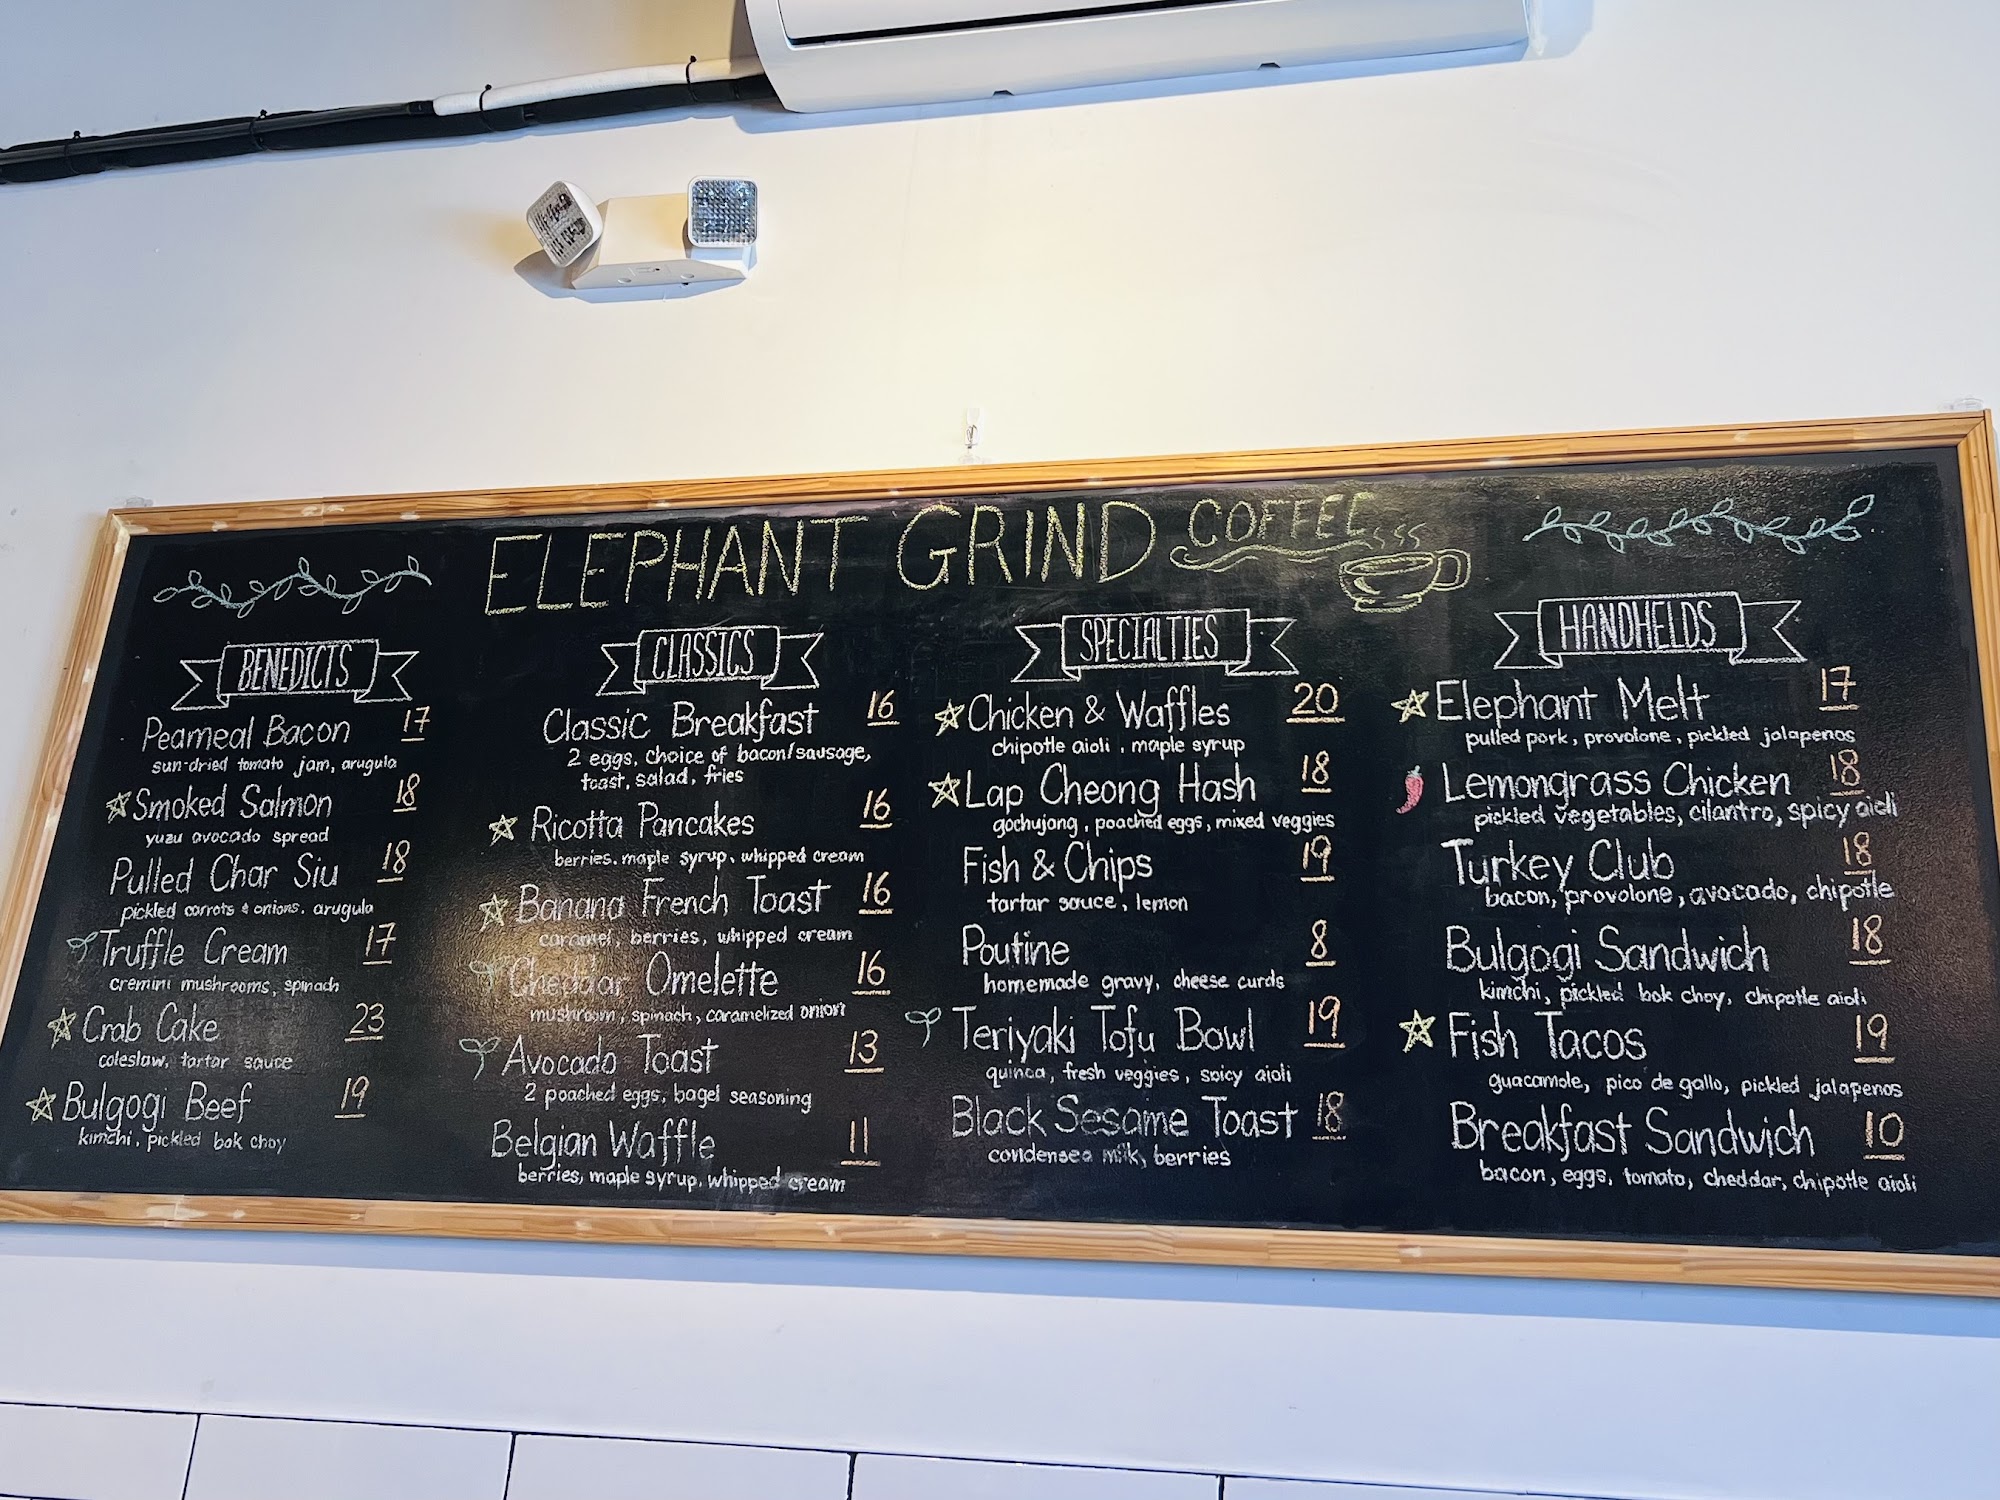 ELEPHANT GRIND COFFEE
BENEDICTS
Peameal Bacon 17
sun-dried tomato jam, arugula
Smoked Salmon 18
yuzu avocado spread
Pulled Char Siu 18
pickled carrots & onions, arugula
Truffle Cream 17
cremini mushrooms, spinach
Crab Cake 23
coleslaw, tartar sauce
Bulgogi Beef 19
kimchi, pickled bok choy
CLASSICS
Classic Breakfast 16
2 eggs, choice of bacon/sausage,
toast, salad, fries
Ricotta Pancakes 16
berries, maple syrup, whipped cream
Banana French Toast 16
caramel, berries, whipped cream
Cheddar Omelette 16
mushroom, spinach, caramelized onion
Avocado Toast 13
2 poached eggs, bagel seasoning
Belgian Waffle 11
berries, maple syrup, whipped cream
SPECIALTIES
Chicken & Waffles 20
chipotle aioli, maple syrup
Lap Cheong Hash 18
gochujang, poached eggs, mixed veggies
Fish & Chips 19
tartar sauce, lemon
Poutine 8
homemade gravy, cheese curds
Teriyaki Tofu Bowl 19
quinoa, fresh veggies, spicy aioli
Black Sesame Toast 18
condensed milk, berries
HANDHELDS
Elephant Melt 17
pulled pork, provolone, pickled jalapenos
Lemongrass Chicken 18
pickled vegetables, cilantro, spicy aioli
Turkey Club 18
bacon, provolone, avocado, chipotle
Bulgogi Sandwich 18
kimchi, pickled bok choy, chipotle aioli
Fish Tacos 19
guacamole, pico de gallo, pickled jalapenos
Breakfast Sandwich 10
bacon, eggs, tomato, cheddar, chipotle aioli